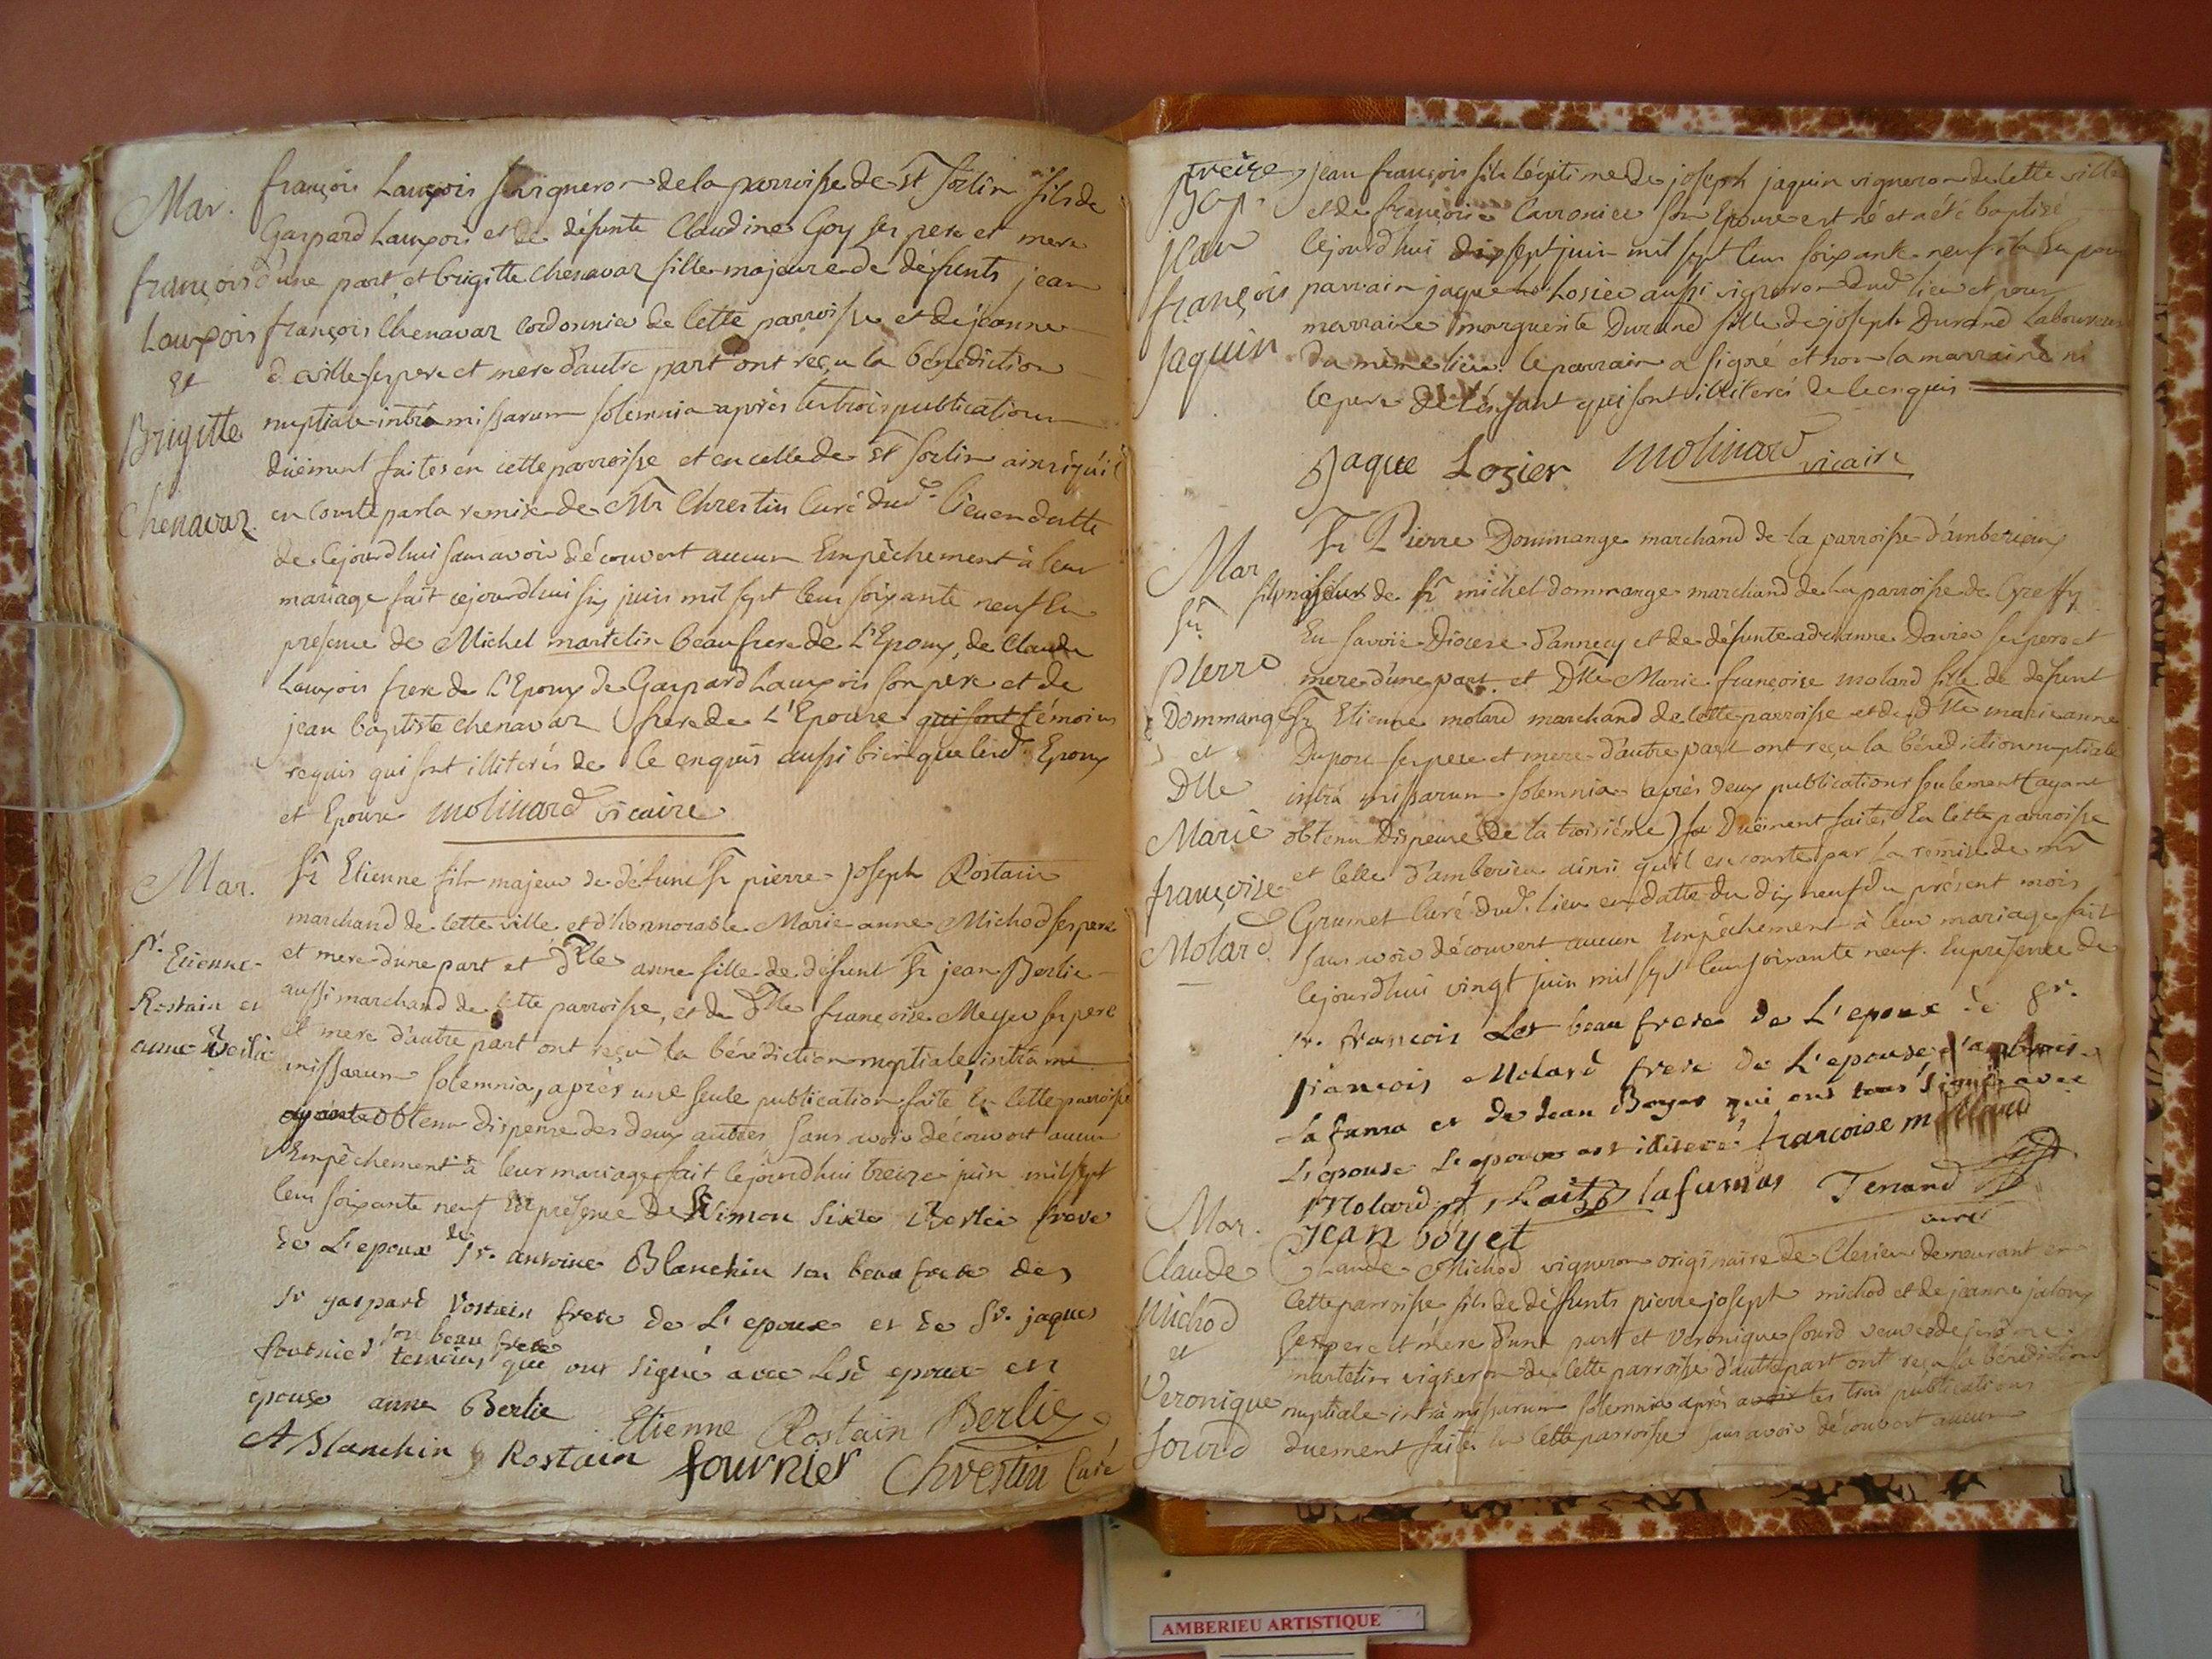 Mar.
françois
Lauxois
et
Brigitte
Chenavaz.
françois Lauxois vigneron de la parroisse de st Sorlin fils de
Gaspard Lauxois et de défunte Claudine Goy ses pere et mere
d'une part et brigitte chenavaz fille majeure de défunts jean
françois Chenavaz cordonnier de cette parroisse et de jeanne
deville ses pere et mere d'autre part ont reçu la bénédiction
nuptiale intrà missarum solemnia après les trois publications
düement faites en cette parroisse et en celle de st Sorlin ainsi qu'il
en conste par la remise de Mr Chrestin Curé dud. lieu en datte
de cejourd'hui sans avoir découvert aucun Empêchement à leur
mariage fait cejourd'hui six juin mil sept cens soixante neuf En
presence de Michel martelin beaufrere de L'Epoux, de Claude
Lauxois frere de L'Epoux de Gaspard Lauxois son pere et de
jean baptiste chenavaz frere de L'Epouse qui sont témoins
requis qui sont illiterés de ce enquis aussi bien que lesd. Epoux
et Epouse Molinard vicaire
Mar.
sr. Etienne
Rostain et
anne Berlie
Sr Etienne fils majeur de défunt Sr pierre joseph Rostain
marchand de cette ville et d'honnorable Marie anne Michod ses pere
et mere d'une part et dlle anne fille de défunt Sr jean Berlie
aussi marchand de cette parroisse, et de Dlle françoise Meyer ses pere
et mere d'autre part ont reçu la bénédiction nuptiale intrà
missarum solemnia, après une seule publication faite en cette parroisse
ayante obtenu dispense des deux autres, sans avoir découvert aucun
Empêchement à leur mariage fait cejourd'hui treize juin mil sept
cens soixante neuf En présence de Simon Berlie frere
de L'epoux de sr. antoine Blanchin son beau frere de
sr gaspard Rostain frere de L'epoux et de Sr. jaques
fournier son beau frere temoins qui ont signé avec lesd epoux et
epouse anne Berlie Etienne Rostain Berlie
A Blanchin G Rostain fournier Chrestin Curé
treize
Bap.
jean
françois
jaquin
jean françois fils légitime de joseph jaquin vigneron de cette ville
et de françoise Carronier son Epouse est né et a été baptisé
cejourd'hui dix sept juin mil sept cens soixante neuf il a Eu pour
parrain jaque Losier aussi vigneron dud lieu et pour
marraine marguerite Durand fille de joseph Durand Laboureur
du même lieu. le parrain a signé et non la marraine ni
le pere de l'enfant qui sont illiterés de ce enquis
Jaque Lozier Molinard vicaire
Mar
Sr.
Pierre
Dommange
et
Dlle
Marie
françoise
Molard
Sr Pierre Dommange marchand de la parroisse d'amberieux
fils majeur de Sr michel dommange marchand de la parroisse de
En Savoie Diocese d'annecy et de défunte adrianne Davier ses pere et
mere d'une part. et Dlle Marie françoise molard fille de defunt
Sr Etienne molard marchand de cette parroisse et de dlle marie anne
Duport ses pere et mere d'autre part ont reçu la bénédiction nuptiale
intrà missarum solemnia après deux publications seulement (ayant
obtenu Dispense de la troisiéme) Düement faites En cette parroisse
et celle d'amberieu ainsi qu'il en conste par la remise de mr
Grumet Curé dud. lieu en datte du dix neuf du présent mois
sans avoir découvert aucun Empêchement à leur mariage fait
cejourd'hui vingt juin mil sept cens soixante neuf. En presence de
Sr. françois beau frere de L'epoux de Sr.
françois Molard frere de L'epouse
Lafuma et de Jean Boyer qui ont tous signés avec
L'epouse L'epoux est illiteré françoise mollard
Molard lafumas Tenand
Jean böyet curé
Mar.
Claude
Michod
et
Veronique
Sourd
Claude Michod vigneron originaire de Clesieu demeurant en
cette parroisse fils de défunts pierre joseph michod et de jeanne
ses pere et mere d'une part et veronique sourd veuve de jerôme
martelin vigneron de cette parroisse d'autre part ont reçu la bénédiction
nuptiale intrà missarum solemnia après avoir les trois publications
duement faites en cette parroisse sans avoir découvert aucun
AMBERIEU ARTISTIQUE